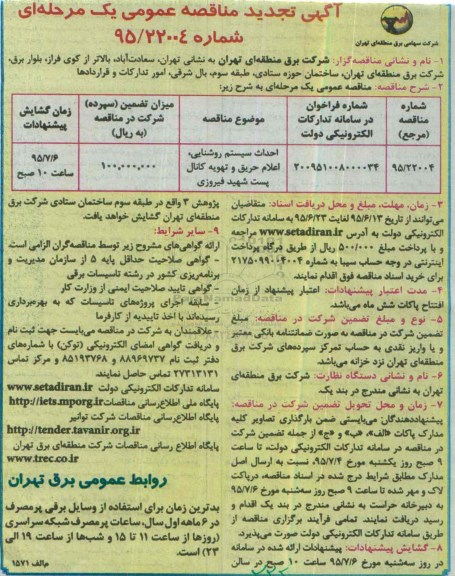 آگهی تجدید مناقصه عمومی یک مرحله‌ای
شماره ۹۵/۲۲۰۰۴
شرکت سهامی برق منطقه‌ای تهران
۱- نام و نشانی مناقصه‌گزار: شرکت برق منطقه‌ای تهران به نشانی تهران، سعادت‌آباد، بالاتر از کوی فراز، بلوار برق،
شرکت برق منطقه‌ای تهران، ساختمان حوزه ستادی، طبقه سوم، بال شرقی، امور تدارکات و قراردادها
۲- شرح مناقصه: مناقصه عمومی یک مرحله‌ای به شرح زیر:
شماره مناقصه (مرجع)
شماره فراخوان در سامانه تدارکات الکترونیکی دولت
موضوع مناقصه
میزان تضمین (سپرده) شرکت در مناقصه (به ریال)
زمان گشایش پیشنهادات
۹۵/۲۲۰۰۴
۲۰۰۹۵۱۰۰۸۰۰۰۰۳۴
احداث سیستم روشنایی، اعلام حریق و تهویه کانال پست شهید فیروزی
۱۰۰,۰۰۰,۰۰۰
۹۵/۷/۶ ساعت ۱۰ صبح
۳- زمان، مهلت، مبلغ و محل دریافت اسناد: متقاضیان
می‌توانند از تاریخ ۹۵/۶/۱۳ لغایت ۹۵/۶/۲۳ به سامانه تدارکات
الکترونیکی دولت به آدرس www.setadiran.ir مراجعه
و با پرداخت مبلغ ۵۰۰/۰۰۰ ریال از طریق درگاه پرداخت
اینترنتی در وجه حساب سیبا به شماره ۲۱۷۵۰۹۹۰۰۴۰۰۴
برای خرید اسناد مناقصه فوق اقدام نمایند.
۴- مدت اعتبار پیشنهادات: اعتبار پیشنهاد از زمان
افتتاح پاکات شش ماه می‌باشد.
۵- نوع و مبلغ تضمین شرکت در مناقصه: مبلغ
تضمین شرکت در مناقصه به صورت ضمانتنامه بانکی معتبر
و یا واریز نقدی به حساب تمرکز سپرده‌های شرکت برق
منطقه‌ای تهران نزد خزانه می‌باشد.
۶- نام و نشانی دستگاه نظارت: شرکت برق منطقه‌ای
تهران به نشانی مندرج در بند یک.
۷- زمان و محل تحویل تضمین شرکت در مناقصه:
پیشنهاددهندگان می‌بایستی ضمن بارگذاری تصاویر کلیه
مدارک پاکات «الف»، «ب» و «ج» از جمله تضمین شرکت
در مناقصه در سامانه تدارکات الکترونیکی دولت، تا ساعت
۹ صبح روز یکشنبه مورخ ۹۵/۷/۴، نسبت به ارسال اصل
مدارک مطابق شرایط درج شده در اسناد مناقصه، درپاکت
لاک و مهر شده تا ساعت ۹ صبح روز سه‌شنبه مورخ ۹۵/۷/۶
به دبیرخانه حراست به نشانی مندرج در بند یک اقدام و
رسید دریافت نمایند. تمامی فرآیند برگزاری مناقصه از
طریق سامانه تدارکات الکترونیکی دولت صورت می‌پذیرد.
۸- گشایش پیشنهادات: پیشنهادات ارائه شده در سامانه
در روز سه‌شنبه مورخ ۹۵/۷/۶ ساعت ۱۰ صبح در سالن
پژوهش ۳ واقع در طبقه سوم ساختمان ستادی شرکت برق
منطقه‌ای تهران گشایش خواهد یافت.
۹- سایر شرایط:
ارائه گواهی‌های مشروح زیر توسط مناقصه‌گران الزامی است.
- گواهی صلاحیت حداقل پایه ۵ از سازمان مدیریت و
برنامه‌ریزی کشور در رشته تاسیسات برقی
- گواهی تایید صلاحیت ایمنی از وزارت کار
- سابقه اجرای پروژه‌های تاسیسات که به بهره‌برداری
رسیده‌اند با اخذ تاییدیه از کارفرما
- علاقمندان به شرکت در مناقصه می‌بایست جهت ثبت نام
و دریافت گواهی امضای الکترونیکی (توکن) با شماره‌های
دفتر ثبت نام ۸۸۹۶۹۷۳۷ و ۸۵۱۹۳۷۶۸ و مرکز تماس
۲۷۳۱۳۱۳۱ تماس حاصل نمایند.
سامانه تدارکات الکترونیکی دولت www.setadiran.ir
پایگاه ملی اطلاع‌رسانی مناقصات http://iets.mporg.ir
پایگاه اطلاع رسانی مناقصات شرکت توانیر
http://tender.tavanir.org.ir
پایگاه اطلاع رسانی مناقصات شرکت منطقه‌ای برق تهران
www.trec.co.ir
روابط عمومی برق تهران
بدترین زمان برای استفاده از وسایل برقی پرمصرف
در ۶ ماهه اول سال، ساعات پرمصرف شبکه سراسری
(روزها از ساعت ۱۱ تا ۱۵ و شب‌ها از ساعت ۱۹ الی
۲۳) است.
م‌الف ۱۵۷۱